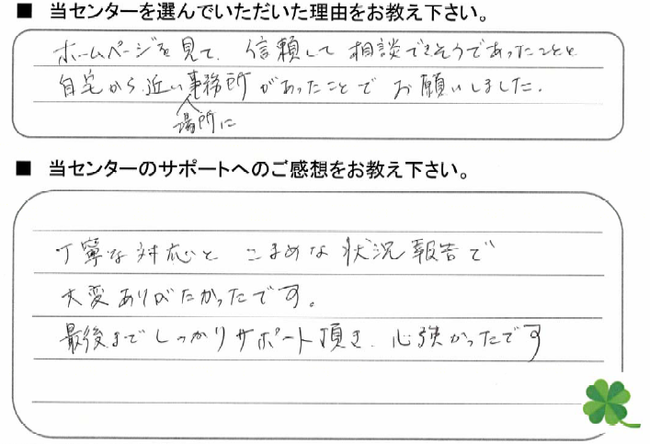 ■ 当センターを選んでいただいた理由をお教え下さい。
ホームページを見て、信頼して相談できそうであったことと
自宅から近い事務所があったことでお願いしました。
場所に
■ 当センターのサポートへのご感想をお教え下さい。
丁寧な対応とこまめな状況報告で
大変ありがたかったです。
最後までしっかりサポート頂き、心強かったです